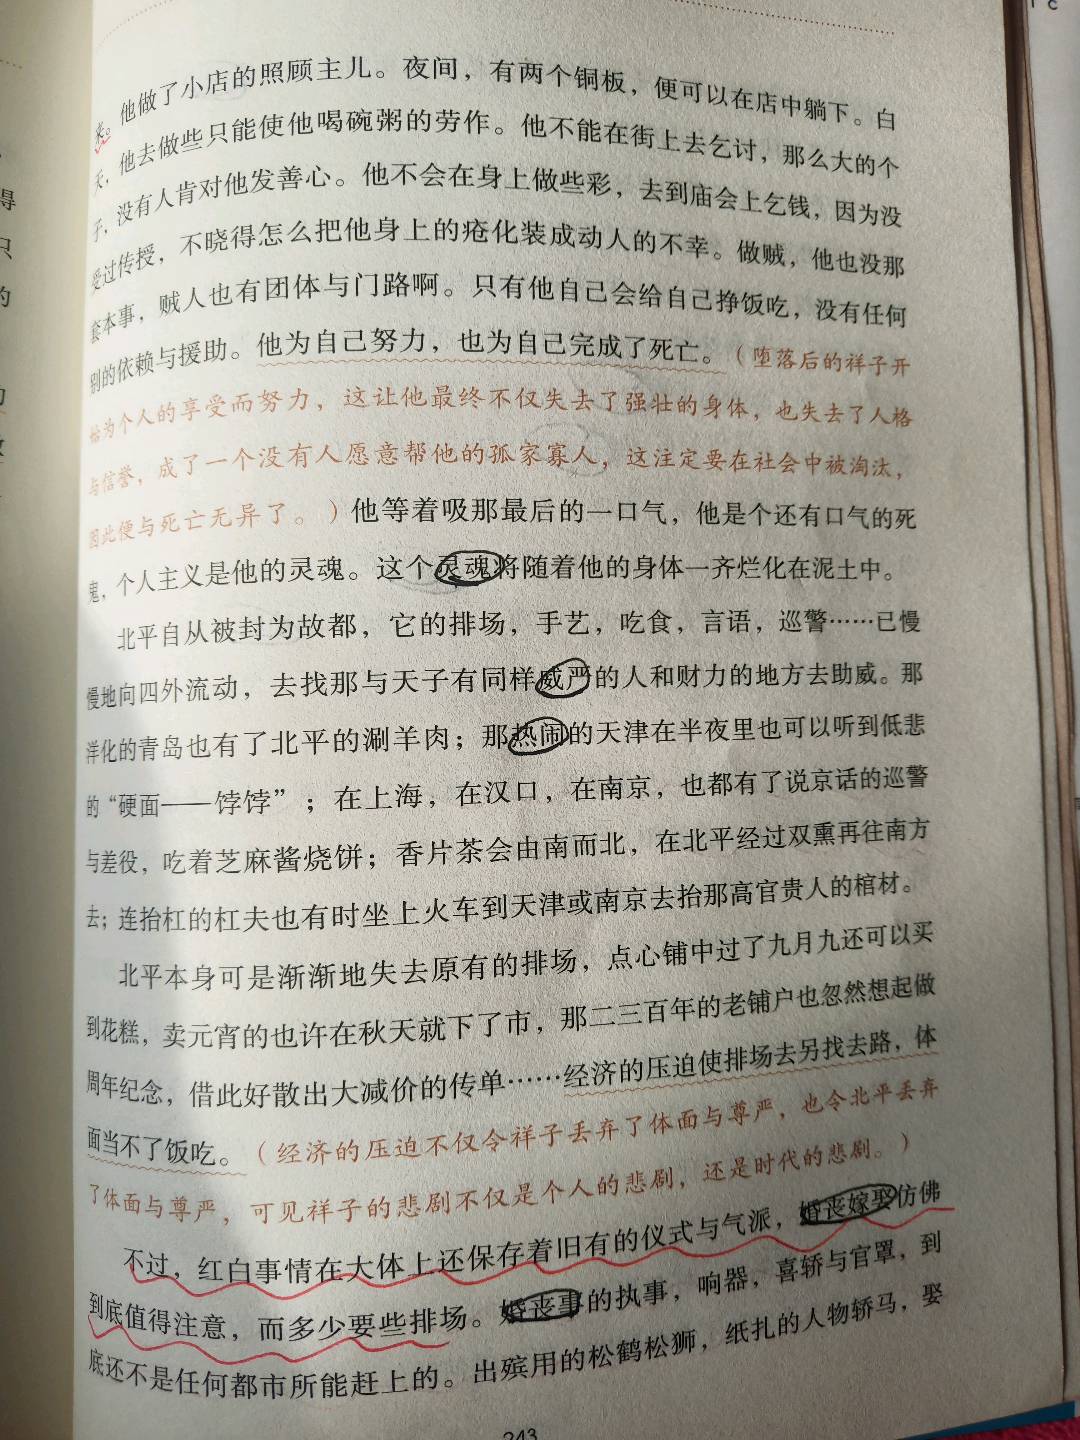 来。他做了小店的照顾主儿。夜间，有两个铜板，便可以在店中躺下。白
天，他去做些只能使他喝碗粥的劳作。他不能在街上去乞讨，那么大的个
子，没有人肯对他发善心。他不会在身上做些彩，去到庙会上乞钱，因为没
受过传授，不晓得怎么把他身上的疮化装成动人的不幸。做贼，他也没那
套本事，贼人也有团体与门路啊。只有他自己会给自己挣饭吃，没有任何
别的依赖与援助。他为自己努力，也为自己完成了死亡。（堕落后的祥子开
始为个人的享受而努力，这让他最终不仅失去了强壮的身体，也失去了人格
与信誉，成了一个没有人愿意帮他的孤家寡人，这注定要在社会中被淘汰，
因此便与死亡无异了。）他等着吸那最后的一口气，他是个还有口气的死
鬼，个人主义是他的灵魂。这个灵魂将随着他的身体一齐烂化在泥土中。
北平自从被封为故都，它的排场，手艺，吃食，言语，巡警……已慢
慢地向四外流动，去找那与天子有同样威严的人和财力的地方去助威。那
洋化的青岛也有了北平的涮羊肉；那热闹的天津在半夜里也可以听到低悲
的“硬面——饽饽”；在上海，在汉口，在南京，也都有了说京话的巡警
与差役，吃着芝麻酱烧饼；香片茶会由南而北，在北平经过双熏再往南方
去；连抬杠的杠夫也有时坐上火车到天津或南京去抬那高官贵人的棺材。
北平本身可是渐渐地失去原有的排场，点心铺中过了九月九还可以买
到花糕，卖元宵的也许在秋天就下了市，那二三百年的老铺户也忽然想起做
周年纪念，借此好散出大减价的传单……经济的压迫使排场去另找去路，体
面当不了饭吃。（经济的压迫不仅令祥子丢弃了体面与尊严，也令北平丢弃
了体面与尊严，可见祥子的悲剧不仅是个人的悲剧，还是时代的悲剧。）
不过，红白事情在大体上还保存着旧有的仪式与气派，婚丧嫁娶仿佛
到底值得注意，而多少要些排场。婚丧事的执事，响器，喜轿与官罩，到
底还不是任何都市所能赶上的。出殡用的松鹤松狮，纸扎的人物轿马，娶
243
得
只
的